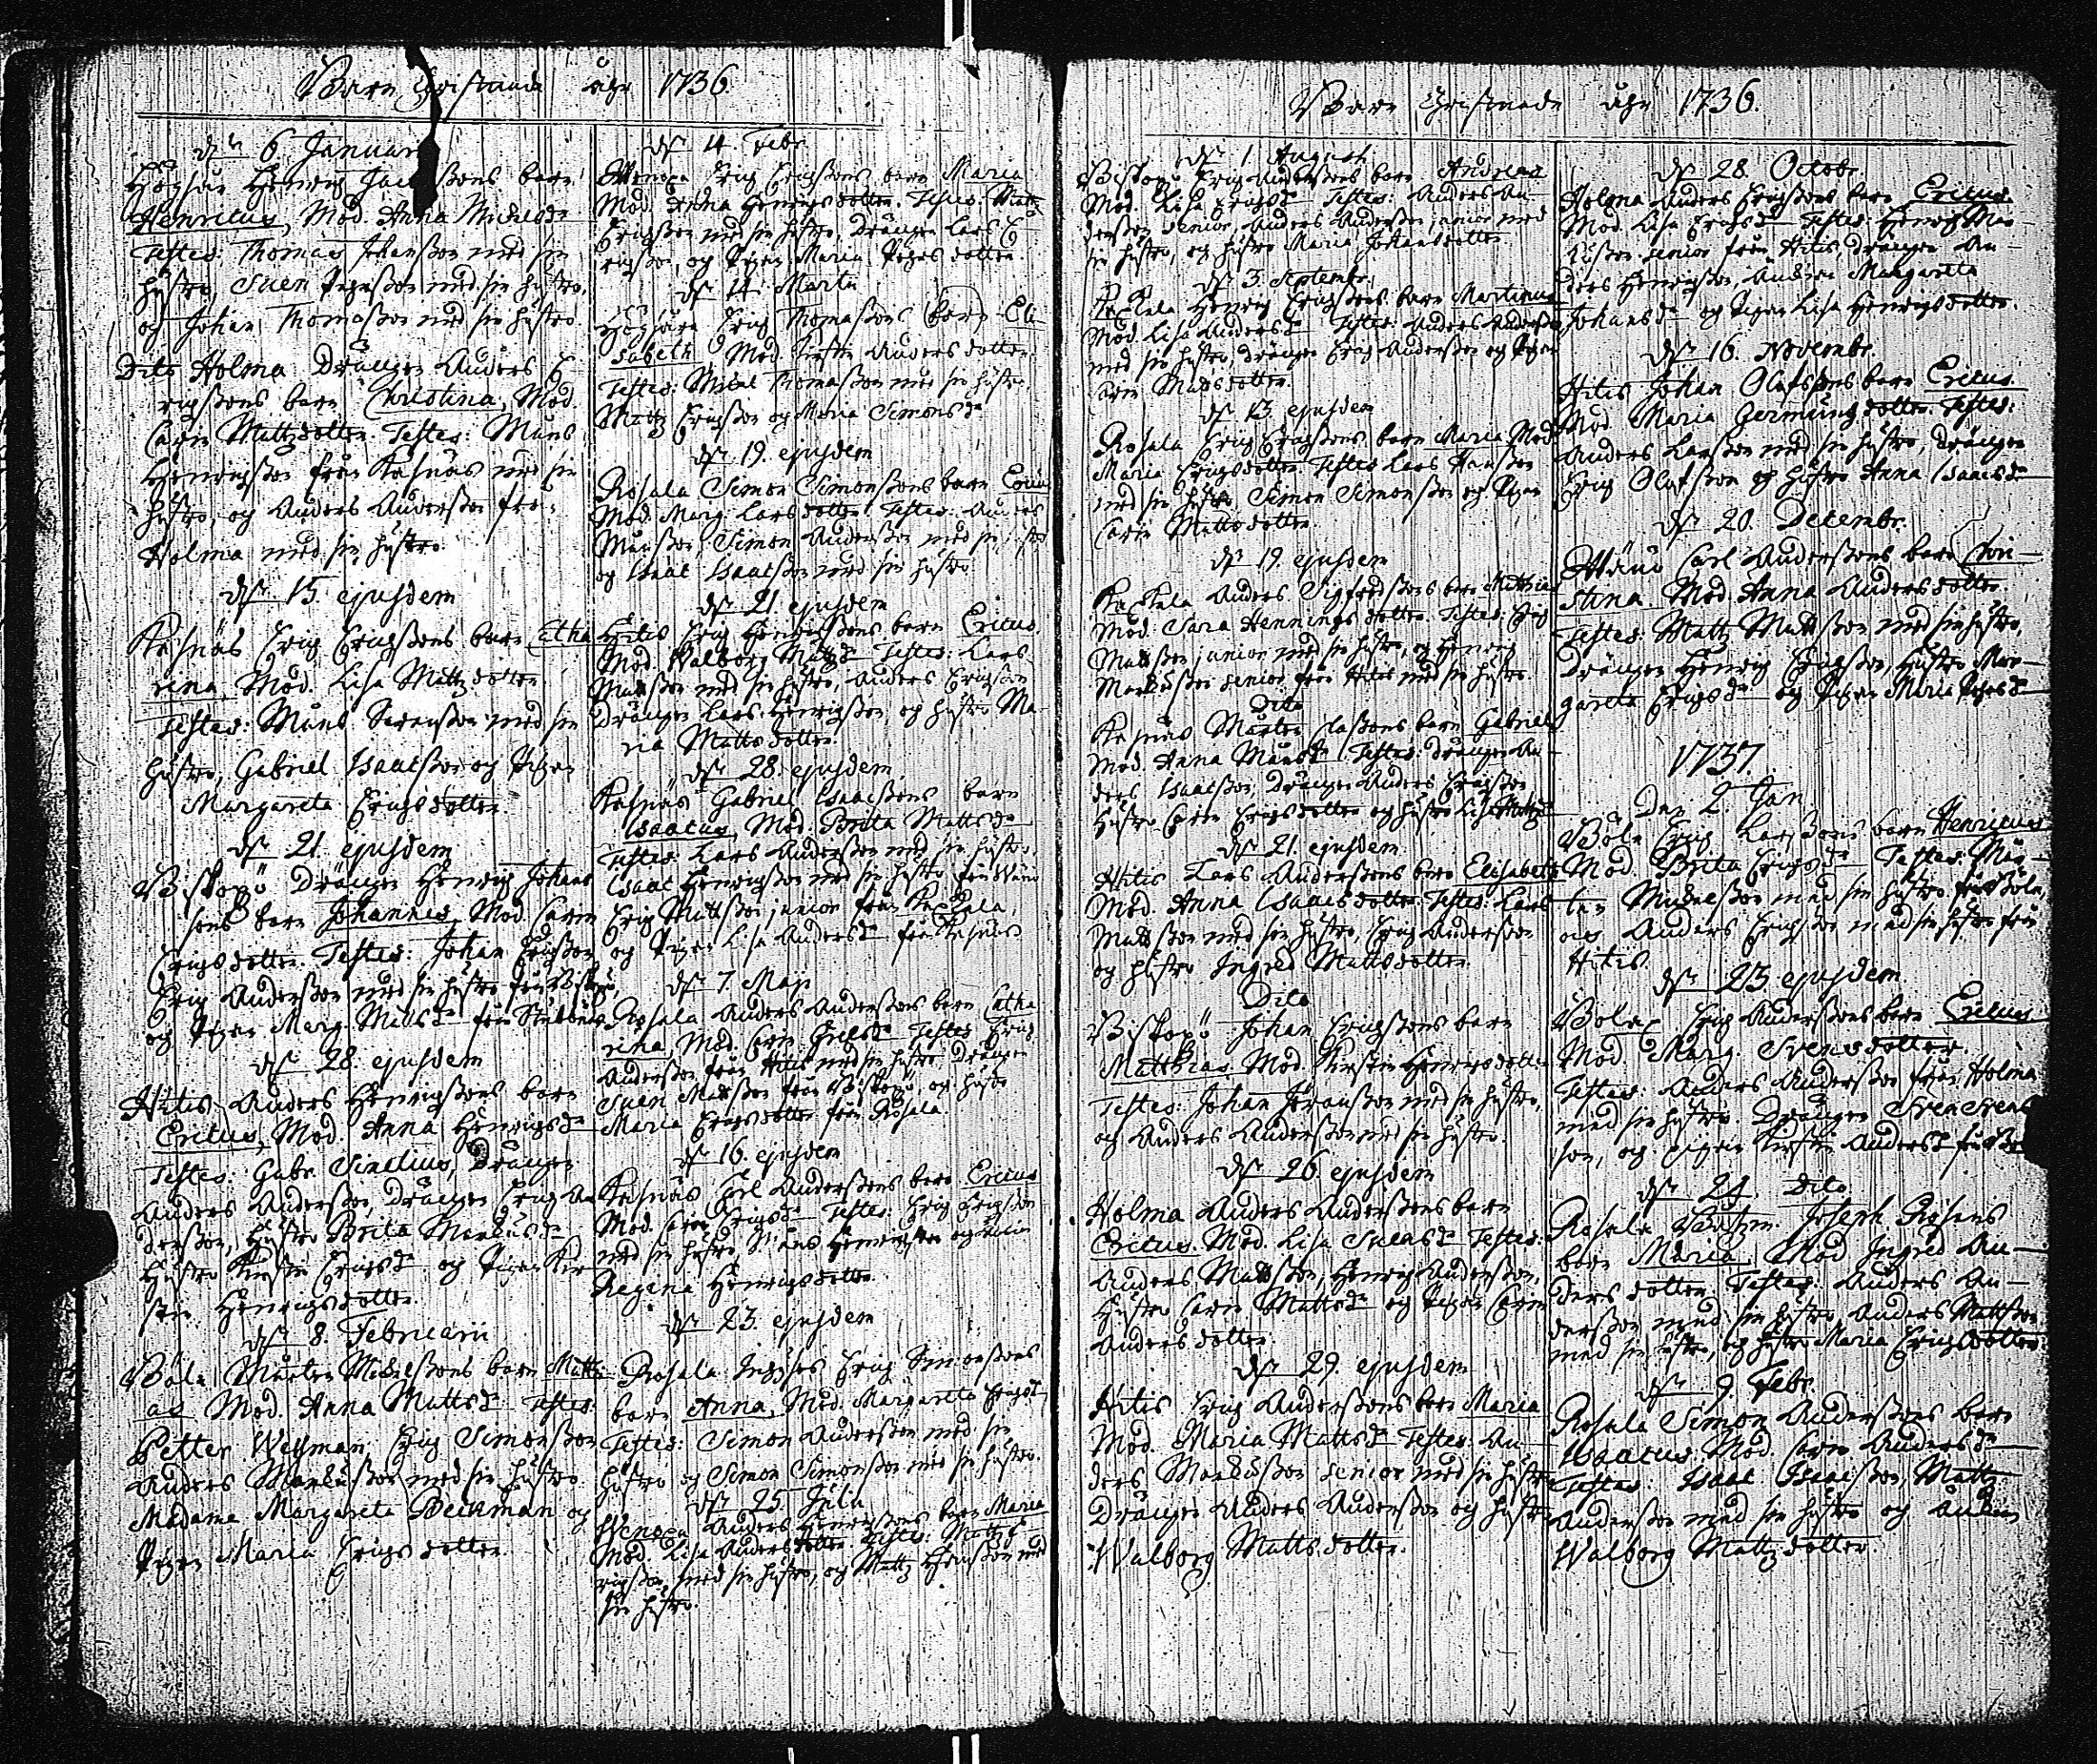 Barn Christnade åhr 1736.
dn 6 Januarii
Högsåra Henrig Jacobssons barn
Henricus, Mod. Anna Michelsdr
Testes: Thomas Johansson med sin
hustro, Suen Pehrsson med sin hustro,
och Johan Thomasson med sin hustro
Dito Holma Drängen Anders E-
rigssons barn Christina, Mod.
Carin Mattzdotter. Testes: Måns
Henrigsson från Kasnäs med sin
hustro, och Anders Andersson från
Holma med sin hustro
dn 15. ejusdem
Kasnäs Erig Erigssons barn Catha
rina, Mod. Lisa Mattzdotter
Testes: Måns Söransson med sin
hustro, Gabriel Isaacsson och Pigan
Margareta Erigsdotter.
dn 21. ejusdem
Biskopö Drängen Henrig Johans
sons barn Johannes Mod. Carin
Erigsdotter. Testes: Johan Erigsson
Erig Andersson med sin hustro från Biskopö,
och Pigan Marg. Mattsdr från
dn 28. ejusdem
Hitis Anders Henrigssons barn
Ericus, Mod. Anna Henrigsdr
Testes: Gabr. Sinelius, Drängen
Anders Andersson, Drängen Erig An
dersson, Hustro Brita Markusdr
Hustro Kirstin Erigsdr och Pigan Kir
stin Henrigsdotter.
dn 8. Februarii
Böle Mårten Mickelssons barn Matthi
as Mod. Anna Mattsdr Testes:
Petter Wessman, Erig Simonsson
Anders Markusson med sin hustro
Madame Margareta Beckman och
Pigan Maria Erigsdotter.
dn 14. Febr.
Wänoxa Erig Erigssons barn Maria
Mod. Anna Henrigsdotter. Testes: Matz
Erigsson med sin hustro, Drängen Lars E-
rigsson, och Pigan Maria Pehrsdotter.
dn 14. Martii
Högsåra Erig Thomassons barn Eli
sabeth Mod. Kirstin Andersdotter.
Testes: Michel Thomasson med sin hustro
Mattz Erigsson och Maria Simonsdr
dn 19. ejusdem
Rosala Simon Simonssons barn Ericus
Mod. Marg. Larsdotter Testes: Anders
Månsson, Simon Andersson med sin hustro
och Isaac Isaacsson med sin hustro
dn 21. ejusdem
Hitis Erig Henrigssons barn Ericus.
Mod. Walborg Mattzdr Testes: Lars
Mattsson med sin hustro, Anders Erigsson
Drängen Lars Henrigsson, och hustro Ma-
ria Mattsdotter.
dn 28. ejusdem
Kasnäs Gabriel Isaacssons barn
Isaacus, Mod. Brita Mattsdr
Testes: Lars Andersson med sin hustro,
Isaac Henrigsson med sin hustro från
Erig Mattsson junior från Kaxkala,
och Pigan Lisa Andersdr från Kasnäs
dn 7. Maji
Rosala Anders Anderssons barn Catha
rina, Mod. Carin Testes Erig
Andersson från Hitis med sin hustro Drängen
Suen Mattsson från Biskopö, och hustro
Maria Erigsdotter från Rosala.
dn 16. ejusdem
Kasnäs Carl Anderssons barn Ericus
Mod. Carin Erigsdr Testes: Erig Erigsson
med sin hustro, Måns Henrigsson och
Regina Henrigsdotter.
dn 23. ejusdem
Rosala Erig Simonssons
barn Anna, Mod. Margareta Erigsdr
Testes: Simon Andersson med sin
hustro och Simon Simonsson med sin hustro.
dn 25. Julii
Wenoxa Anders Henrigssons barn Maria
Mod. Lisa Andersdotter Testes: Mattz E-
rigsson med sin hustro, och Mattz Hansson med
sin hustro.
Barn Christnade åhr 1736.
dn 1. Augusti
Biskopö Erig Anderssons barn Andreas
Mod. Lisa Erigsdr Testes: Anders An-
dersson Senior, Anders Andersson junior med
sin hustro, och hustro Maria Johansdotter
dn 3. Septembr.
Kaxkala Henrig Erigssons barn Martinus
Mod. Lisa Andersdr Testes: Anders Andersson
med sin hustro, Drängen Erig Andersson och Pigan
Carin Mattsdotter.
dn 13. ejusdem
Rosala Erig Erigssons barn Maria Mod.
Maria Erigsdotter. Testes Lars Hansson
med sin hustro Simon Simonsson och Pigan
Carin Mattsdotter.
dn 19. ejusdem
Kaxkala Anders Sigfredssons barn Matthias
Mod. Sara Henningsdotter. Testes: Erig
Mattsson junior med sin hustro, och Henrig
Markusson senior från Hitis med sin hustro.
Dito
Kasnäs Mårten Classons barn Gabriel
Mod. Anna Månsdr Testes: Drängen An-
ders Isaacsson, Drängen Anders Erigsson
Hustro Carin Erigsdotter och Hustro Lisa Mattzdr
dn 21. ejusdem
Hitis Lars Anderssons barn Elisabeth
Mod. Anna Isaacsdotter. Testes: Lars
Mattsson med sin hustro, Erig Andersson
och hustro Ingred Mattsdotter.
Dito
Biskopö Johan Erigssons barn
Matthias Mod. Kirstin Henrigsdotter
Testes: Johan Göransson med sin hustro,
och Anders Andersson med sin hustro.
dn 26. ejusdem
Holma Anders Anderssons barn
Ericus. Mod. Lisa Suensdr Testes:
Anders Mattsson, Henrig Andersson,
Hustro Carin Mattsdr och Pigan Carin
Andersdotter
dn 29. ejusdem
Hitis Erig Anderssons barn Maria
Mod. Maria Mattsdr Testes: An-
ders Markusson senior med sin hustro
Drängen Anders Andersson och hustro
Walborg Mattsdotter.
dn 28. Octobr.
Holma Anders Erigssons barn Ericus.
Mod. Lisa Erigsdr Testes: Henrig Mar-
kusson senior från Hitis, Drängen An-
ders Henrigsson, Änkan Margareta
Johansdr och Pigan Lisa Henrigsdotter.
dn 16. Novembr.
Hitis Johan Olofssons barn Ericus
Mod Maria Germundsdotter. Testes:
Anders Larsson med sin hustro, Drängen
Erig Olofsson och hustro Anna Isaacsdr
dn 20. Decembr.
Wänö Carl Anderssons barn Chri-
stina. Mod. Anna Andersdotter.
Testes: Mattz Mattsson med sin hustro,
Drängen Henrig Erigsson, Hustro Mar-
gareta Erigsdr och Pigan Maria Pehrsdr
1737.
Den 2. Jan
Böle Erig Larssons barn Henricus
Mod. Brita Erigsdr Testes: Mår-
ten Mickelsson med sin hustro från Böle,
och Anders Erigsson med sin hustro från
Hitis.
dn 23 ejusdem
Böle Erig Anderssons barn Ericus
Mod. Marg. Svensdotter.
Testes: Anders Andersson från Holma
med sin hustro. Drängen Sven Svens
son, och Pigan Kirstin Andersdr från
dn 24. Dito
Rosala Joseph
barn Maria, Mod Ingred An-
dersdotter Testes: Anders An-
dersson med sin hustro Anders Mattsson
med sin hustro, och hustro Maria Erigsdotter.
dn 9. Febr.
Rosala Simon Anderssons barn
Isaacus. Mod. Carin Andersdr
Testes. Isaac Isaacsson, Mattz
Andersson med sin hustro och Änkan
Walborg Mattzdotter.